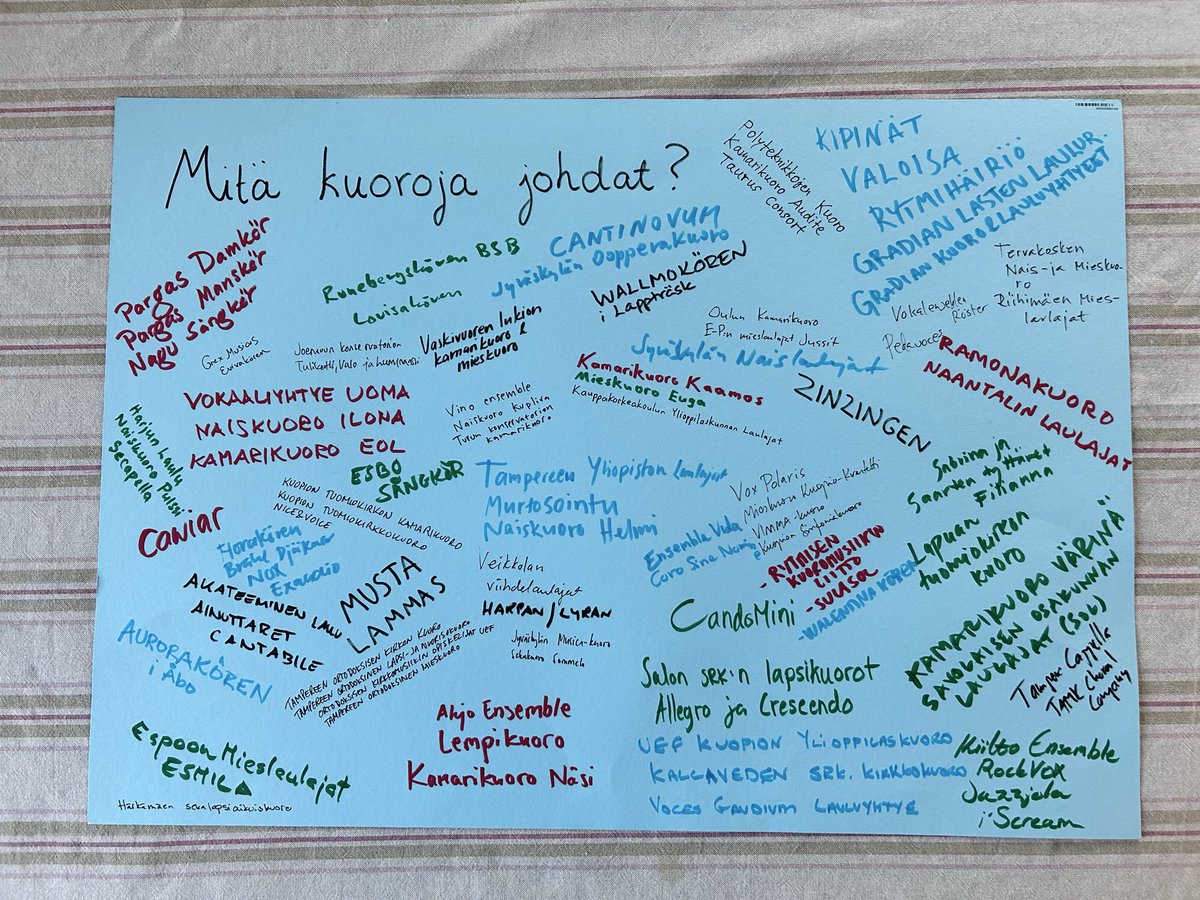 Mitä kuoroja johdat?
Polyteknikkojen Kuoro
Kamarikuoro Audite
Taurus Consort
KIPINÄT
VALOISA
RYTMIHÄIRIÖ
GRADIAN LASTEN LAULUR.
GRADIAN KUORO & LAULUYHTYEET
Pargas Damkör
Pargas Manskör
Nagu Sångkör
Runebergskören BSB
Lovisakören
CANTINOVUM
Jyväskylän Oopperakuoro
WALLMOKÖREN
i Lappträsk
Tervakosken
Nais- ja Mieskuo-
ro
Riihimäen Mies-
laulajat
Grex Musicus
Joensuun konservatorion
Tulikatti, Valo ja hummani
Vaskivuoren lukion
kamarikuoro &
mieskuoro
Oulun Kamarikuoro
E-P:n mieslaulajat Jussit
Röster
Jyväskylän Naislaulajat
RAMONAKUORO
NAANTALIN LAULAJAT
VOKAALIYHTYE UOMA
NAISKUORO ILONA
KAMARIKUORO EOL
Vino ensemble
Naiskuoro Kupliva
Turun konservatorion
kamarikuoro
Kamarikuoro Kaamos
Mieskuoro Euga
Kauppakorkeakoulun Ylioppilaskunnan Laulajat
ZINZINGEN
Harjun Laulu
Naiskuoro Pulssi
Secapella
ESBO
SÅNGKÖR
KUOPION TUOMIOKIRKON KAMARIKUORO
KUOPION TUOMIOKIRKKOKUORO
NICE&VOICE
Tampereen Yliopiston laulajat
Murtosointu
Naiskuoro Helmi
Vox Polaris
Mieskuoro Kuopio-kvartetti
VIMMA-kuoro
Kuopion Sinfoniakuoro
Sabiina ja
Saarten tyttäret
Filianna
Caviar
Florakören
Brahe Djäknar
NOT
Exaudio
Ensemble Vida
Coro Sine Nomine
- RYTMISEN
KUOROMUSIIKIN
LIITTO
- SULASOL
Lapuan
tuomiokirkon
kuoro
AKATEEMINEN LAULU
AINUTTARET
CANTABILE
MUSTA
LAMMAS
Veikkolan
viihdelaulajat
HARPAN/LYRAN
Jyväskylän Musica-kuoro
Sekakuoro Sommelo
CandoMini
KAMARIKUORO VÄRINÄ
SAVOLAISEN OSAKUNNAN
LAULAJAT (SOL)
AURORAKÖREN
i Åbo
TAMPEREEN ORTODOKSISEN KIRKON KUORO
TAMPEREEN ORTODOKSINEN LAPSI- JA NUORISOKUORO
ORTODOKSISEN KIRKKOMUSIIKIN OPISKELIJAT UEF
TAMPEREEN ORTODOKSINEN MIESKUORO
Salon srk:n lapsikuorot
Allegro ja Crescendo
Tampere Cappella
TAMK Choral
Company
Espoon Mieslaulajat
ESMILA
Härkämäen sekalapsiaikuiskuoro
Ahjo Ensemble
Lempikuoro
Kamarikuoro Näsi
UEF KUOPION YLIOPPILASKUORO
KALLAVEDEN SRK. KIRKKOKUORO
VOCES GAUDIUM LAULUYHTYE
Kiilto Ensemble
RockVox
Jazzjala
i:Scream